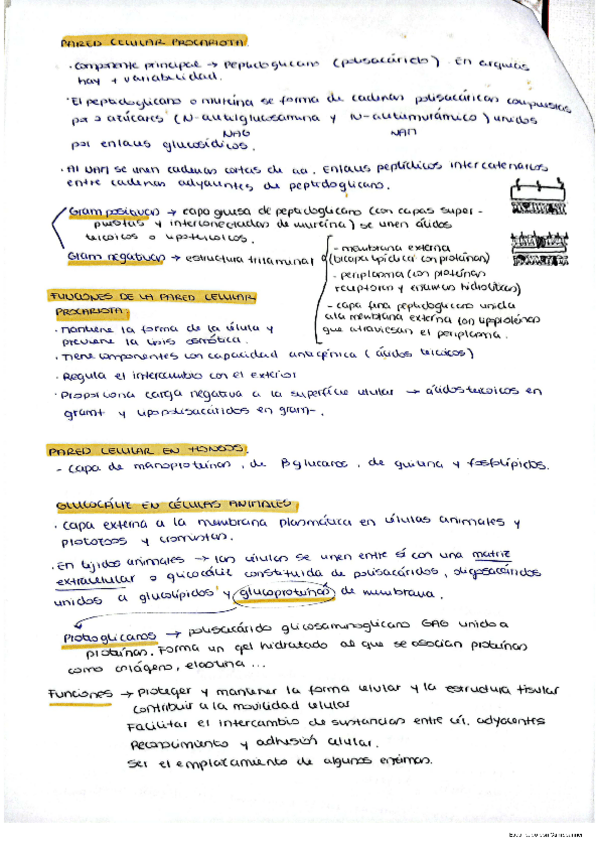 PARED CELULAR PROCARIOTA
· Componente principal → Peptidoglicano (polisacárido). En arqueas
hay + variabilidad.
· El peptidoglicano o mureína se forma de cadenas polisacáridas compuestas
por 2 azúcares (N-acetilglucosamina y N-acetilmurámico) unidos
NAG NAM
por enlaces glucosídicos.
· Al NAM se unen cadenas cortas de aa. Enlaces peptídicos intercatenarios
entre cadenas adyacentes de peptidoglicano.
Gram positivas → capa gruesa de peptidoglicano (con capas super-
puestas y interconectadas de mureína) se unen ácidos
teicoicos o lipoteicoicos.
Gram negativas → estructura trilaminar
- membrana externa
(bicapa lipídica con proteínas)
- periplasma (con proteínas
receptoras y enzimas hidrolíticas)
- capa fina peptidoglicano unida
a la membrana externa con lipoproteínas
que atraviesan el periplasma.
FUNCIONES DE LA PARED CELULAR
PROCARIOTA:
· Mantiene la forma de la célula y
previene la lisis osmótica.
· Tiene componentes con capacidad antigénica (ácidos teicoicos)
· Regula el intercambio con el exterior
· Proporciona carga negativa a la superficie celular → ácidos teicoicos en
gram+ y lipopolisacáridos en gram-.
PARED CELULAR EN HONGOS:
- capa de manoproteínas, de β glucanos, de quitina y fosfolípidos.
GLUCOCÁLIX EN CÉLULAS ANIMALES:
· Capa externa a la membrana plasmática en células animales y
protozoos y cromistas.
· En tejidos animales → las células se unen entre sí con una matriz
extracelular o glicocálix constituida de polisacáridos, oligosacáridos
unidos a glucolípidos y glucoproteínas de membrana.
Proteoglicanos → polisacárido glicosaminoglicano GAG unido a
proteínas. Forma un gel hidratado al que se asocian proteínas
como colágeno, elastina ...
Funciones → Proteger y mantener la forma celular y la estructura tisular
contribuir a la movilidad celular
Facilitar el intercambio de sustancias entre cél. adyacentes
Reconocimiento y adhesión celular.
Ser el emplazamiento de algunos enzimas.